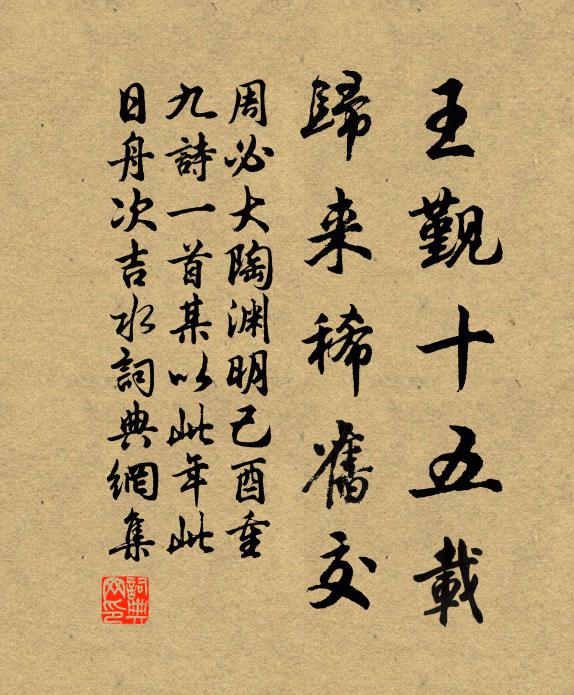 王觐十五載
歸来稀舊交
周必大陶渊明己酉重
九詩一首某以此年此
日舟次吉水詞典網集
詞典网印